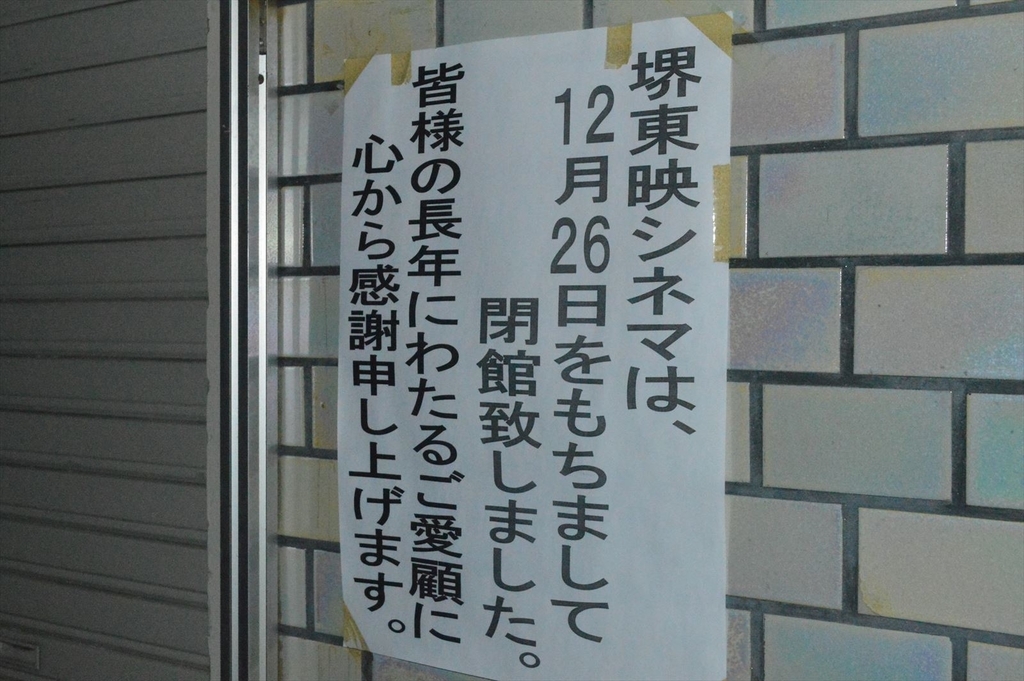 堺東映シネマは、
12月26日をもちまして
閉館致しました。
皆様の長年にわたるご愛顧に
心から感謝申し上げます。